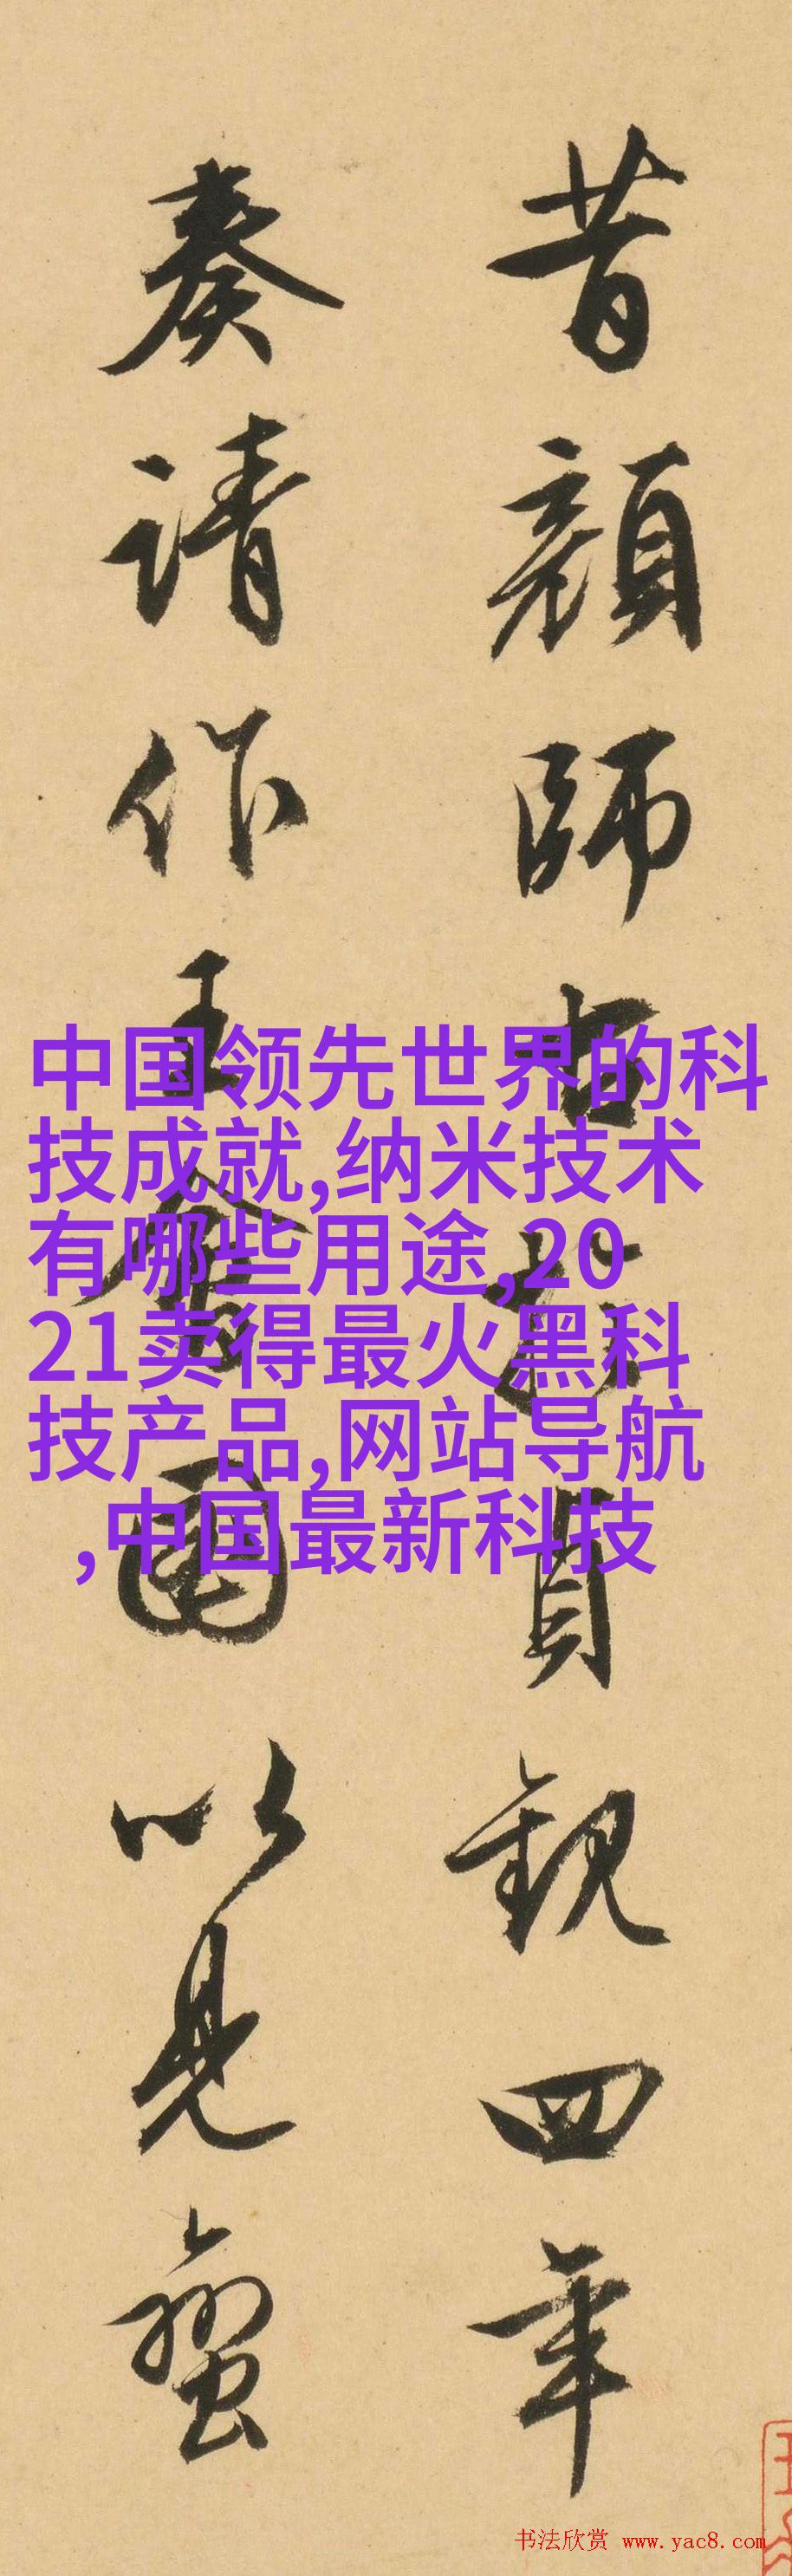 昔顏師古於貞觀四年
奏請作王會圖以見蠻
中国领先世界的科
技成就,纳米技术
有哪些用途,20
21卖得最火黑科
技产品,网站导航
,中国最新科技
书法欣赏 www.yac8.com